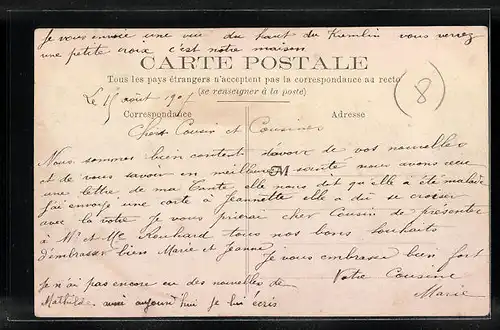 Je vous envoie une vue du haut du Kremlin vous verrez
une petite croix c'est notre maison
CARTE POSTALE
Tous les pays étrangers n'acceptent pas la correspondance au recto
(se renseigner à la poste)
Le 15 août 190
8
Correspondance Adresse
Chers Cousin et Cousines
Nous sommes bien content d'avoir de vos nouvelles
et de vous savoir en meilleure santé nous avons eeu
une lettre de ma Tante elle nous dit qu'elle a été malade
j'ai envoyé une carte à Jeannette elle a dû se croiser
avec la votre Je vous prierai cher Cousin de présenter
à Mr et Me Rouhard tous nos bons souhaits
d'embrasser bien Marie et Jeanne
Je vous embrasse bien fort
Votre Cousine
Marie
Je n'ai pas encore eu des nouvelles de
Mathilde aussi aujourd'hui je lui écris
M